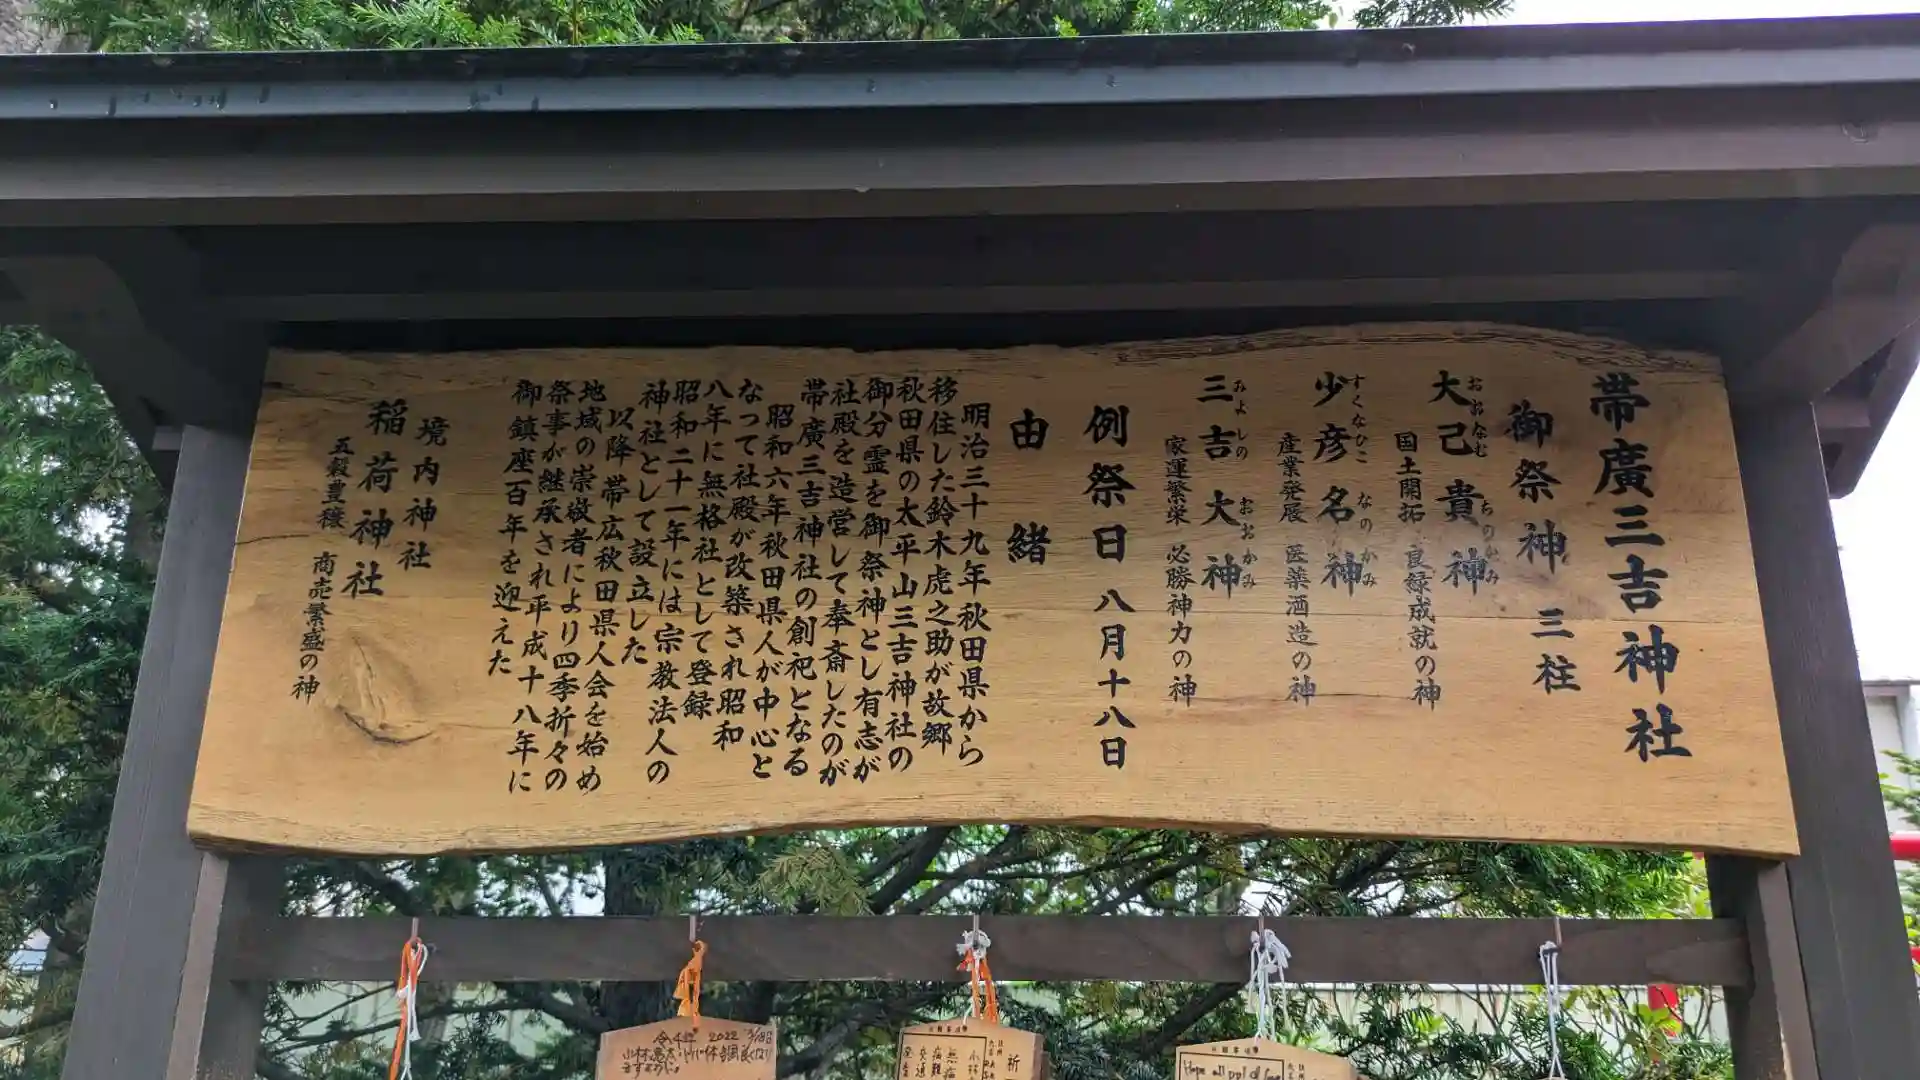 帯廣三吉神社
御祭神 三柱
大己貴神
おおなむちのかみ
国土開拓 良縁成就の神
少彦名神
すくなひこなのかみ
産業発展 医薬酒造の神
三吉大神
みよしのおおかみ
家運繁栄 必勝神力の神
例祭日 八月十八日
由緒
明治三十九年秋田県から
移住した鈴木虎之助が故郷
秋田県の太平山三吉神社の
御分霊を御祭神とし有志が
社殿を造営して奉斎したのが
帯廣三吉神社の創祀となる
昭和六年秋田県人が中心と
なって社殿が改築され昭和
八年に無格社として登録
昭和二十一年には宗教法人の
神社として設立した
以降帯広秋田県人会を始め
地域の崇敬者により四季折々の
祭事が継承され平成十八年に
御鎮座百年を迎えた
境内神社
稲荷神社
五穀豊穣 商売繁盛の神
令4年 2022
祈
無病
交通
Hope all